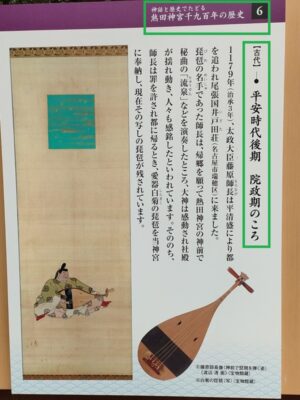 神話と歴史でたどる
熱田神宮千九百年の歴史
6
【古代】
● 平安時代後期 院政期のころ
1179年(治承3年)、太政大臣藤原師長は平清盛により都
を追われ尾張国井戸田荘(名古屋市瑞穂区)に来ました。
琵琶の名手であった師長は、帰郷を願って熱田神宮の神前で
秘曲の「流泉」などを演奏したところ、大神は感動され社殿
が揺れ動き、人々も感銘したといわれています。そののち、
師長は罪を許され都に帰るとき、愛器白菊の琵琶を当神宮
に奉納し、現在その写しの琵琶が残されています。